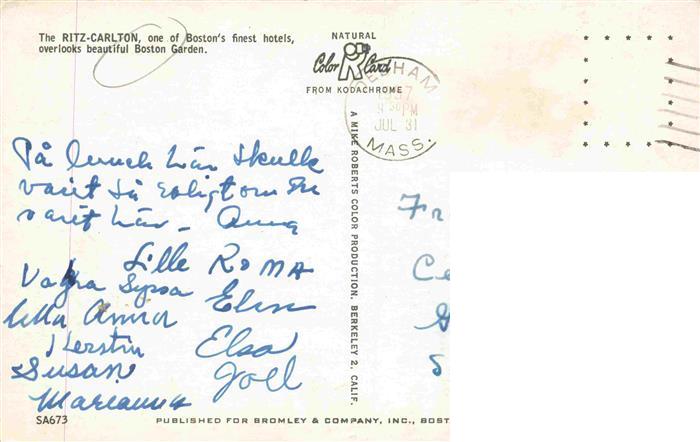 The RITZ-CARLTON, one of Boston's finest hotels,
overlooks beautiful Boston Garden.
NATURAL
Color Card
FROM KODACHROME
DEDHAM
1957
8 30 PM
JUL 31
MASS.
A MIKE ROBERTS COLOR PRODUCTION, BERKELEY 2, CALIF.
På lunch här skulle
varit så roligt om Du
varit här — Anna
Lille ROMA
Valbra Syssa Elin
Ulla Anna
Kerstin Elsa
Susan Joel
Marianna
Fr
Ce
G
S
SA673
PUBLISHED FOR BROMLEY & COMPANY, INC., BOST